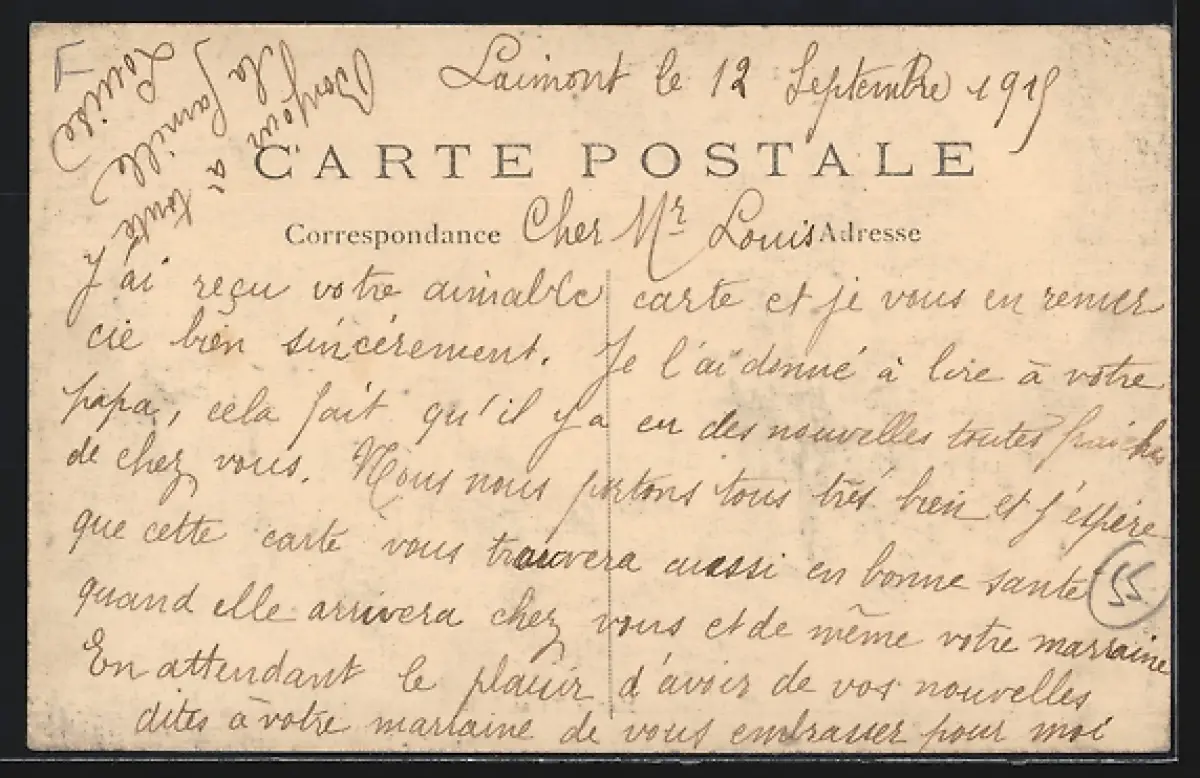 Laimont le 12 Septembre 1915
CARTE POSTALE
Correspondance Cher Mr Louis Adresse
J'ai reçu votre aimable carte et je vous en remer
cie bien sincérement. Je l'ai donné à lire à votre
papa, cela fait qu'il y a eu des nouvelles toutes fraiches
de chez vous. Nous nous portons tous très bien et j'espère
que cette carte vous trouvera aussi en bonne santé
55
quand elle arrivera chez vous et de même votre marraine
En attendant le plaisir d'avoir de vos nouvelles
dites à votre marraine de vous embrasser pour moi
Bonjour à toute
la famille
Louise